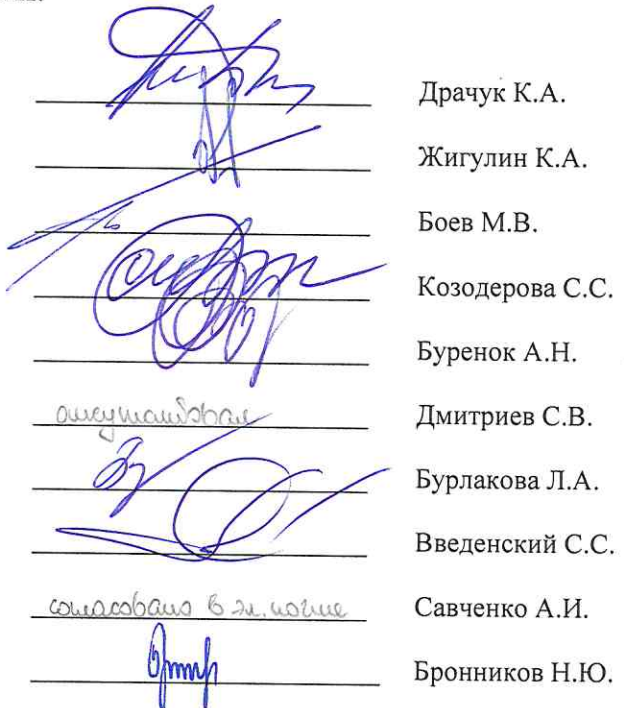 Драчук К.А.
Жигулин К.А.
Боев М.В.
Козодерова С.С.
Буренок А.Н.
отсутствовал Дмитриев С.В.
Бурлакова Л.А.
Введенский С.С.
согласовано в эл. почте Савченко А.И.
Бронников Н.Ю.